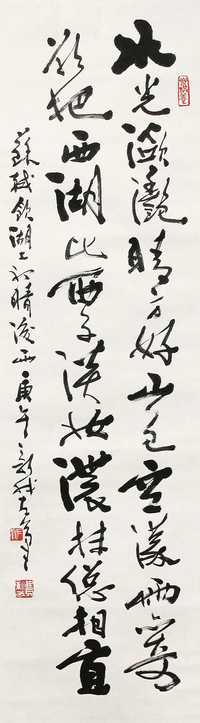 水光瀲灩晴方好山色空濛雨亦奇
欲把西湖比西子淡妝濃抹總相宜
蘇軾飲湖上初晴後雨庚午新我左筆